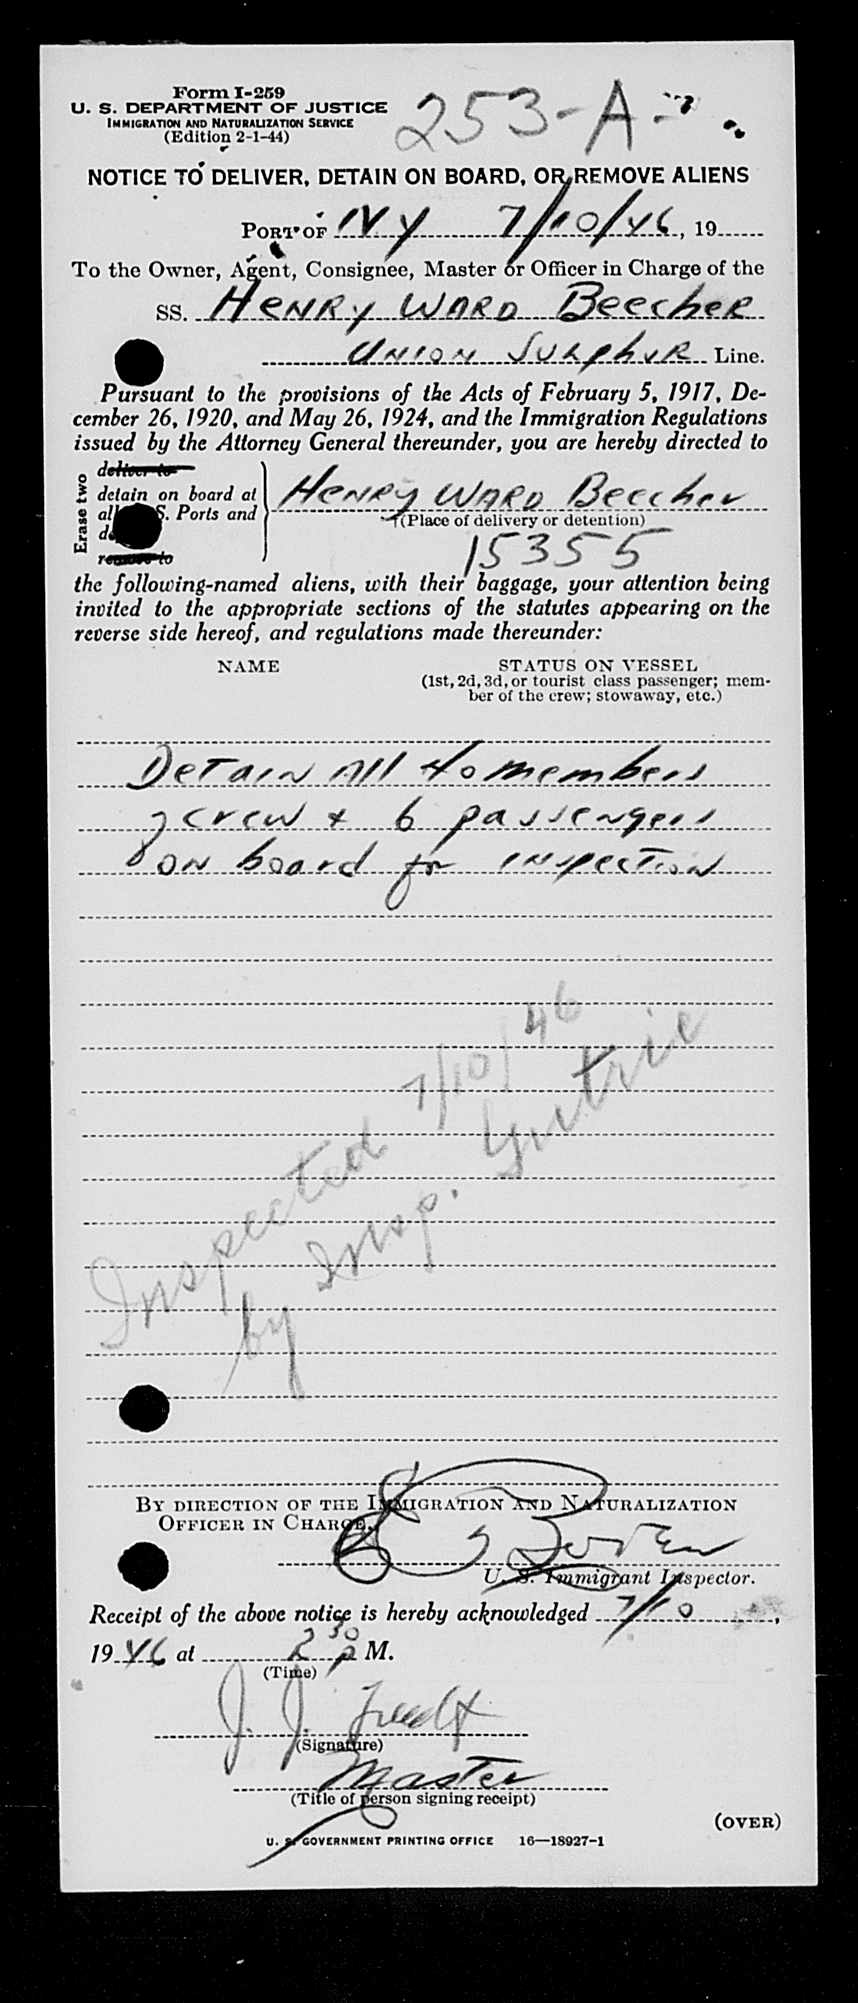 Form I-259
U. S. DEPARTMENT OF JUSTICE
IMMIGRATION AND NATURALIZATION SERVICE
(Edition 2-1-44)
253-A-
NOTICE TO DELIVER, DETAIN ON BOARD, OR REMOVE ALIENS
PORT OF NY 7/10/46, 19
To the Owner, Agent, Consignee, Master or Officer in Charge of the
SS. HENRY WARD Beecher
UNION SULPHUR Line.
Pursuant to the provisions of the Acts of February 5, 1917, De-
cember 26, 1920, and May 26, 1924, and the Immigration Regulations
issued by the Attorney General thereunder, you are hereby directed to
Erase two
deliver to
detain on board at
all S. Ports and
remove to
HENRY WARD Beecher
(Place of delivery or detention)
15355
the following-named aliens, with their baggage, your attention being
invited to the appropriate sections of the statutes appearing on the
reverse side hereof, and regulations made thereunder:
NAME STATUS ON VESSEL
(1st, 2d, 3d, or tourist class passenger; mem-
ber of the crew; stowaway, etc.)
Detain All 40 members
of crew + 6 passengers
on board for inspection
Inspected 7/10/46
by Insp. Gutrie
BY DIRECTION OF THE IMMIGRATION AND NATURALIZATION
OFFICER IN CHARGE,
U. S. Immigrant Inspector.
Receipt of the above notice is hereby acknowledged 7/10,
1946 at 2 30 P M.
(Time)
J. J.
(Signature)
Master
(Title of person signing receipt)
(OVER)
U. S. GOVERNMENT PRINTING OFFICE 16—18927-1